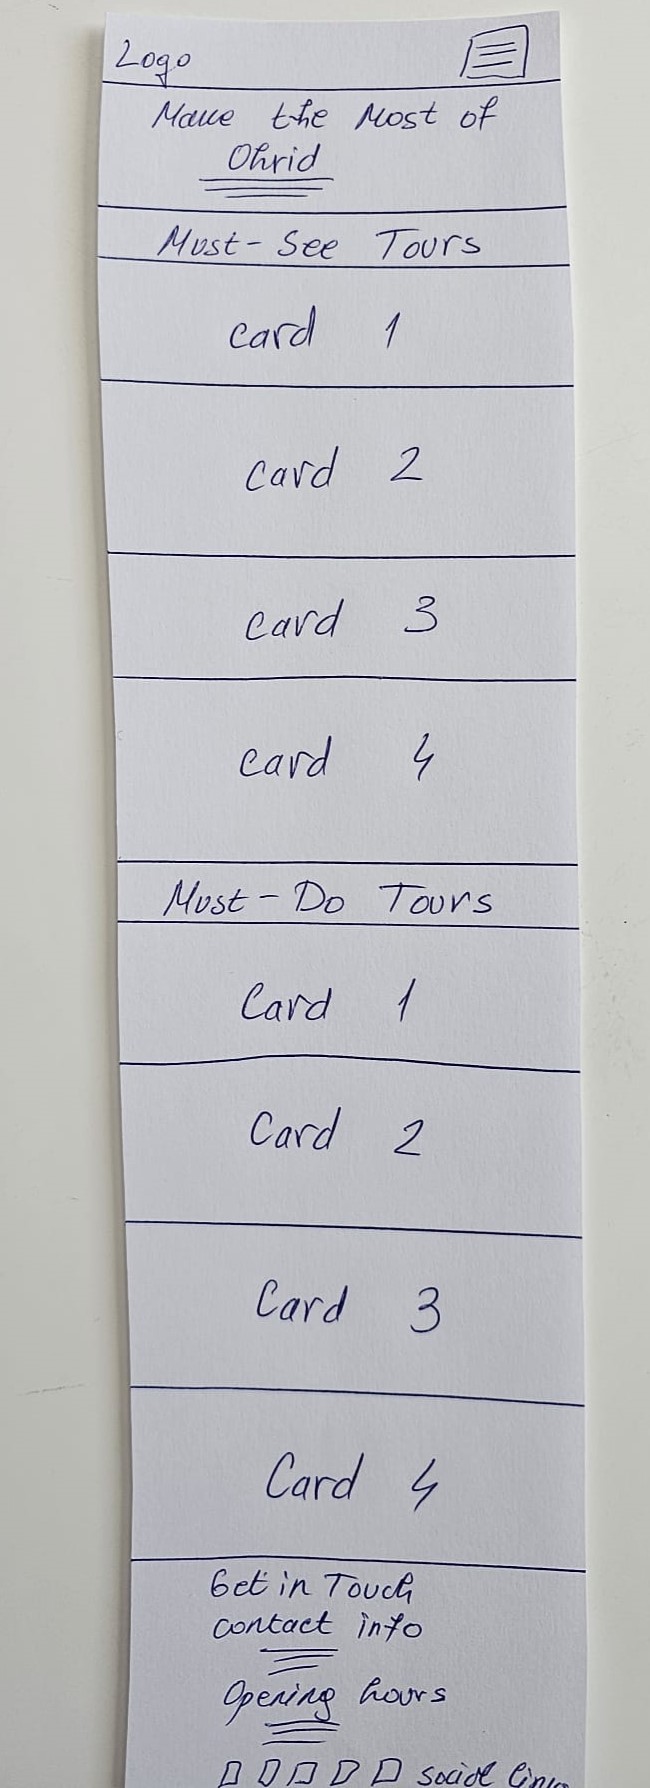 Logo
Make the Most of
Ohrid
Must-See Tours
card 1
card 2
card 3
card 4
Must-Do Tours
Card 1
Card 2
Card 3
Card 4
Get in Touch
contact info
Opening hours
social